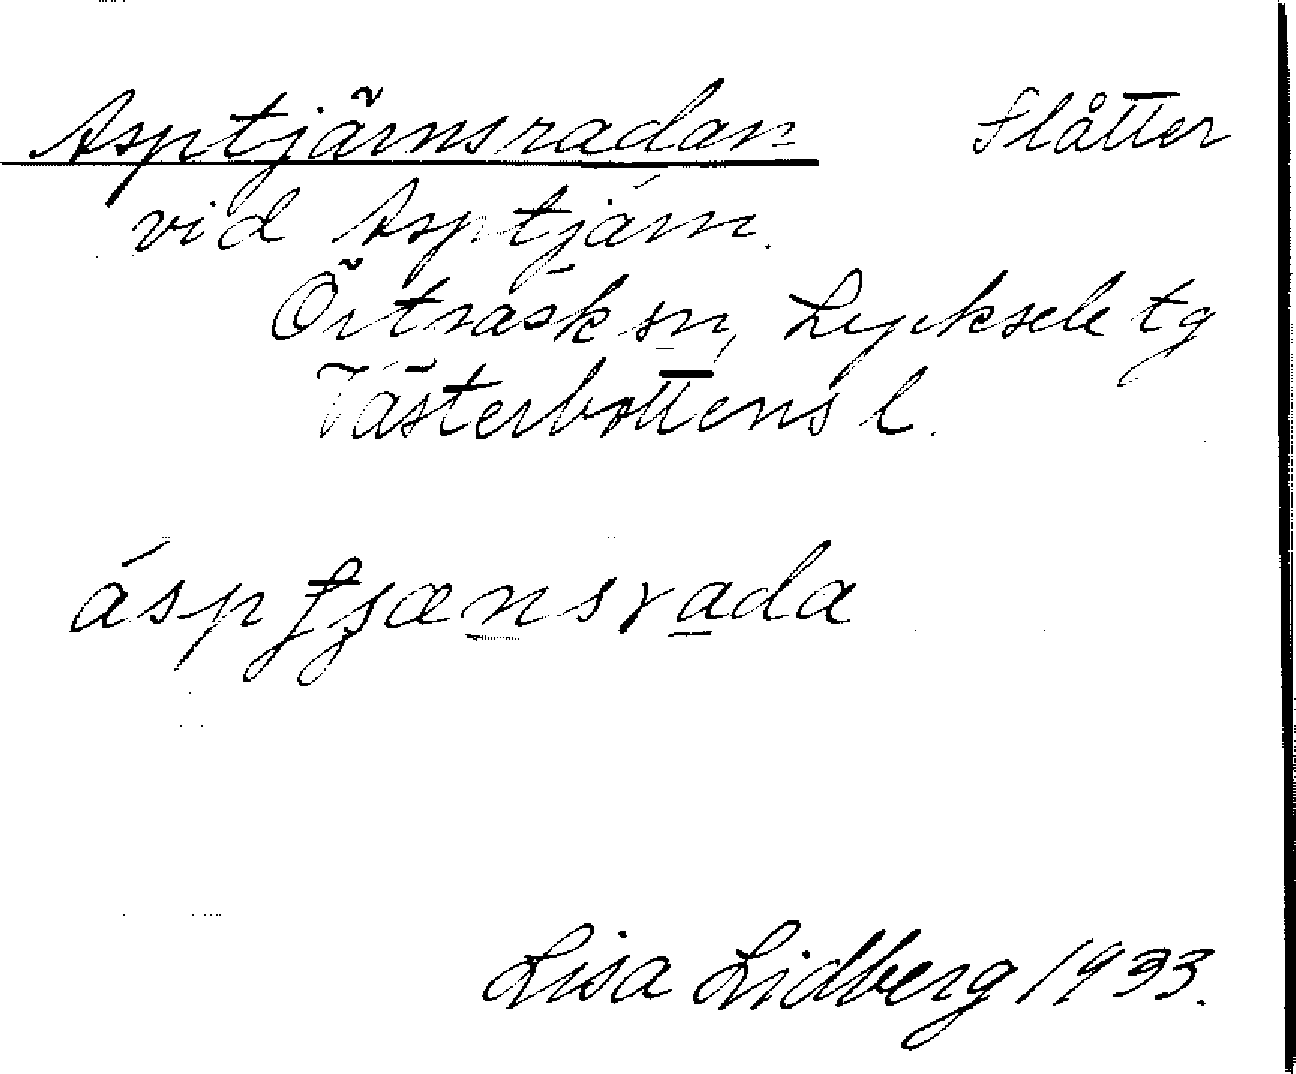 Asptjärnsradan Slåtter
vid Asptjärn.
Örträsk sn, Lycksele tg
Västerbottens l.
ásptjænsrada
Lisa Lidberg 1933.